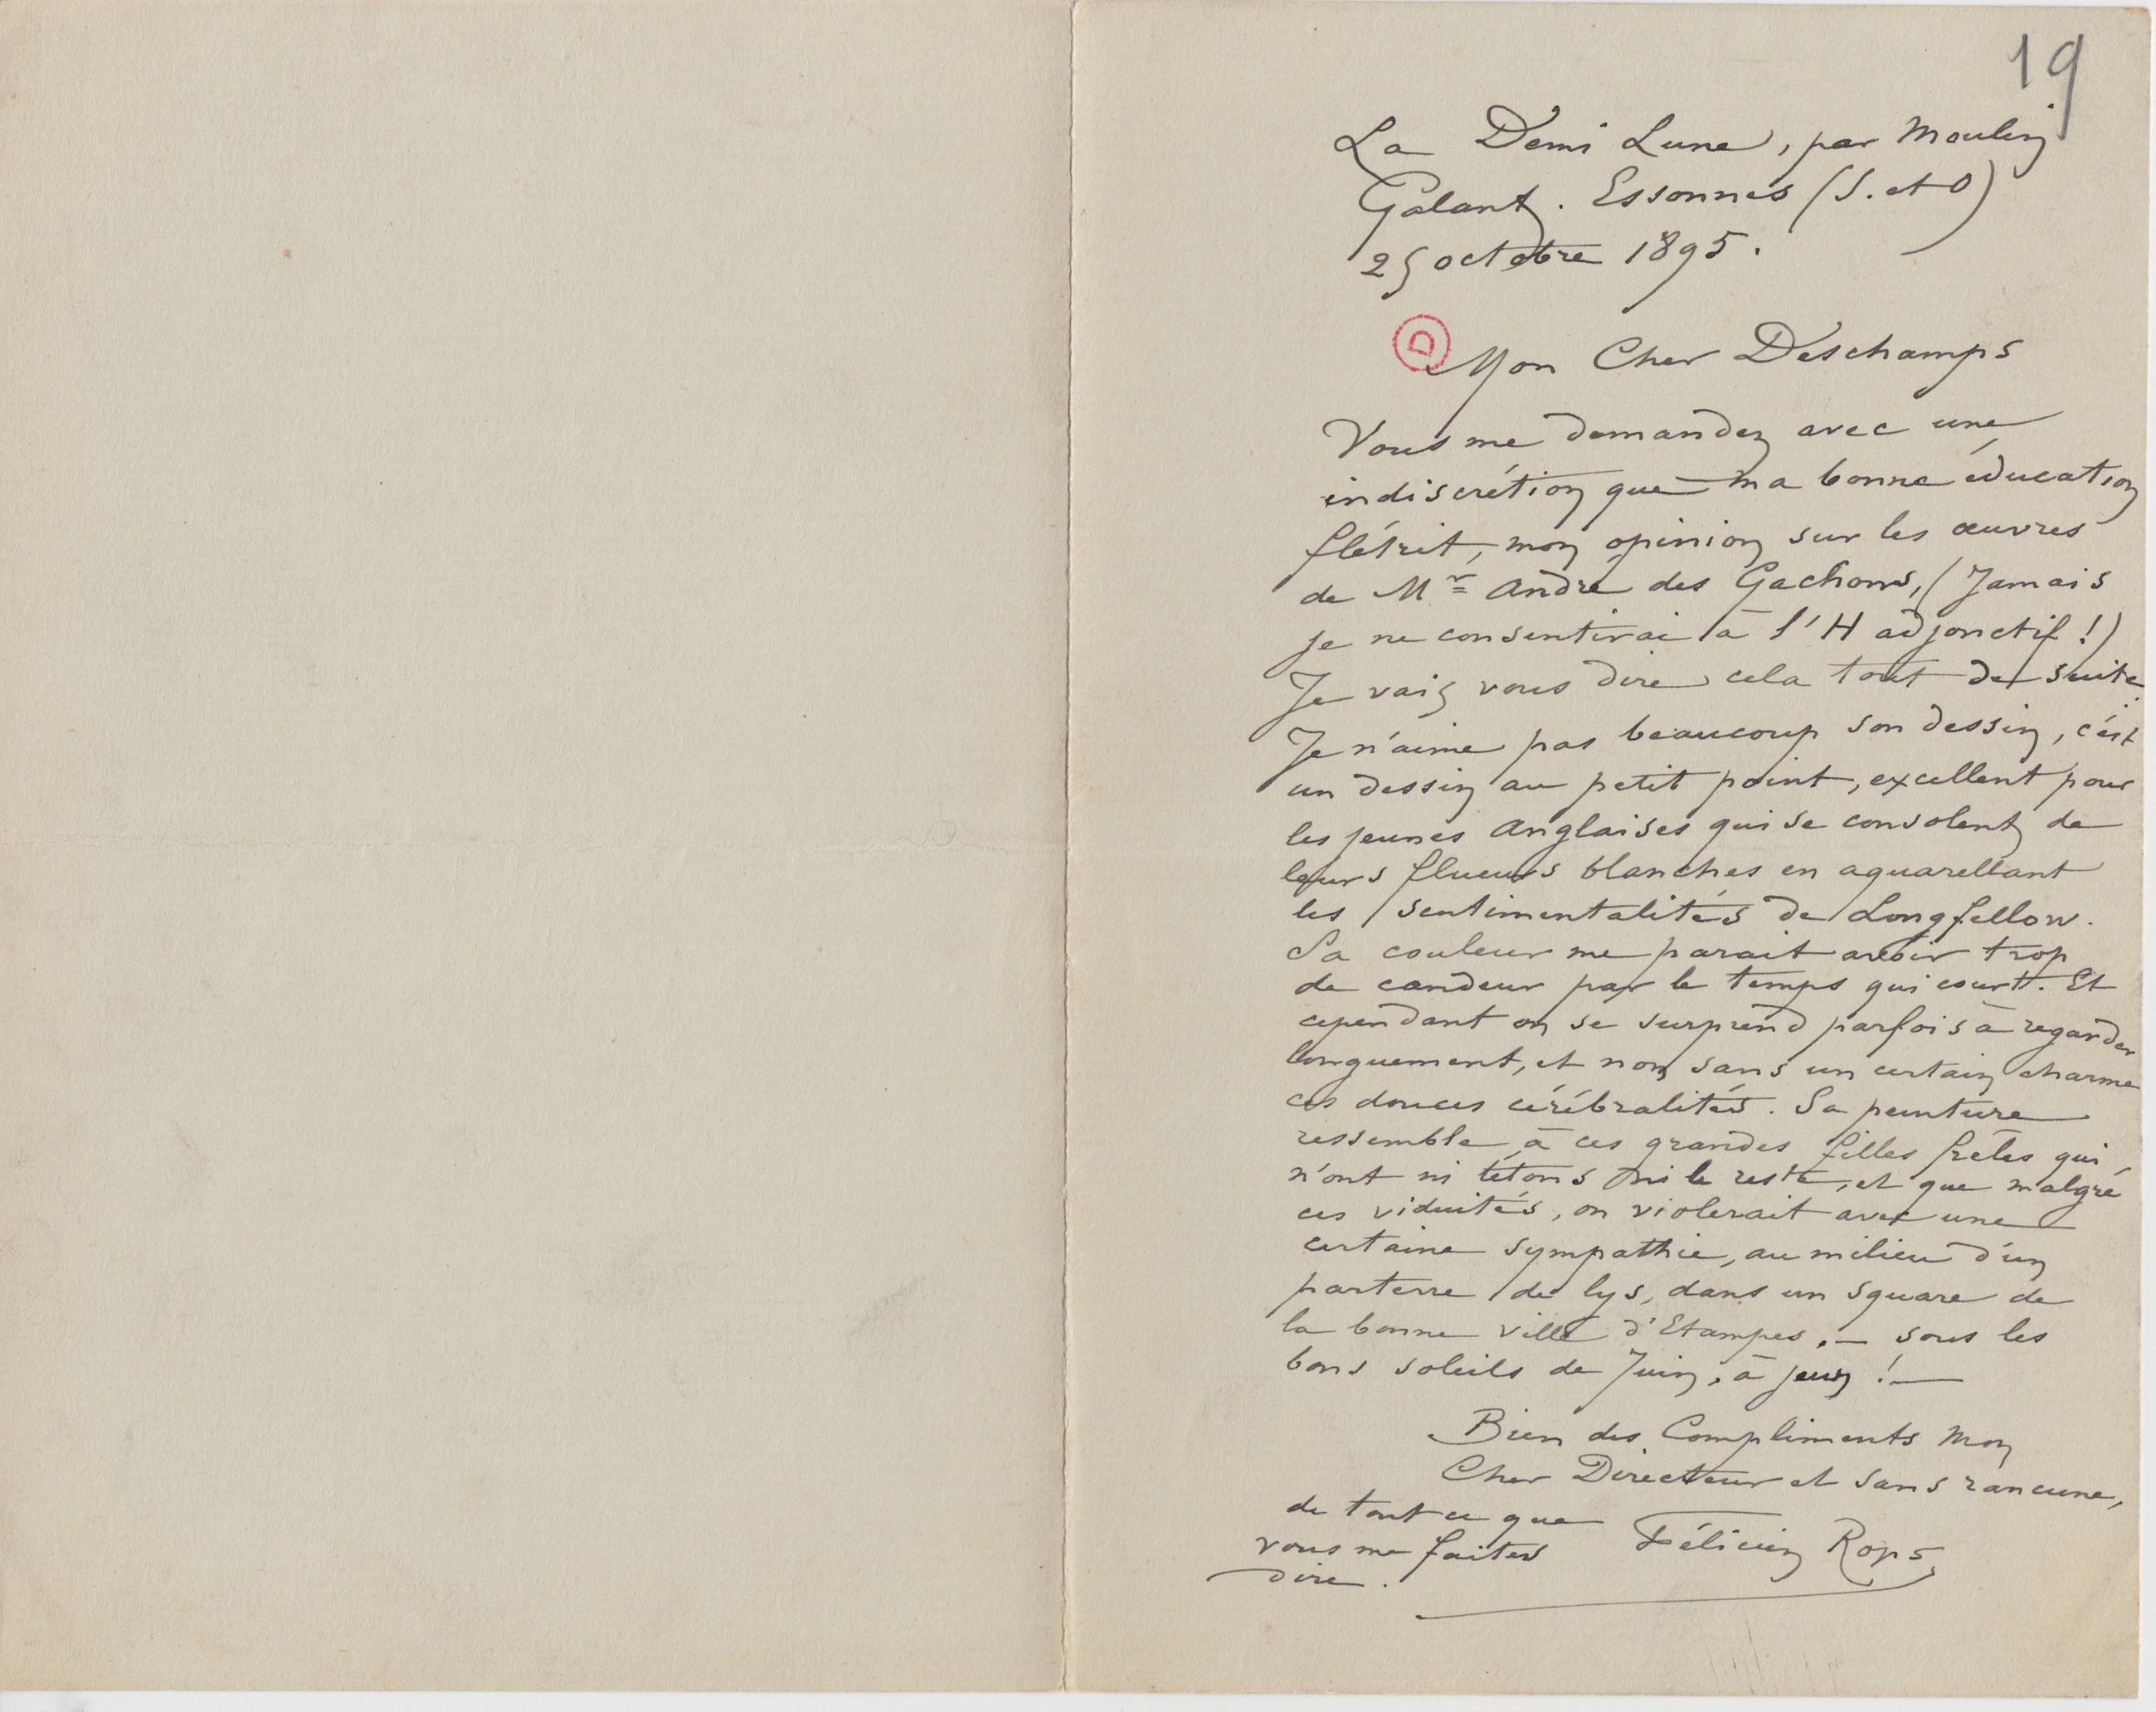 19
La Demi Lune, par Moulin
Galant. Essonnes (S. et O)
25 octobre 1895.
D
Mon Cher Deschamps
Vous me demandez avec une
indiscrétion que ma bonne éducation
flétrit, mon opinion sur les œuvres
de Mr André des Gachons, (Jamais
je ne consentirai à l'H adjonctif !)
Je vais vous dire cela tout de suite.
Je n'aime pas beaucoup son dessin, c'est
un dessin au petit point, excellent pour
les jeunes Anglaises qui se consolent de
leurs flueurs blanches en aquarellant
les sentimentalités de Longfellow.
Sa couleur me parait avoir trop
de candeur par le temps qui court. Et
cependant on se surprend parfois à regarder
longuement, et non sans un certain charme
ces douces cérébralités. Sa peinture
ressemble à ces grandes filles frêles qui
n'ont ni tétons ni le reste, et que malgré
ces viduités, on violerait avec une
certaine sympathie, au milieu d'un
parterre de lys, dans un square de
la bonne ville d'Etampes. — sous les
bons soleils de Juin, à jeun ! —
Bien des Compliments Mon
Cher Directeur et sans rancune,
de tout ce que
vous me faites
dire.
Félicien Rops